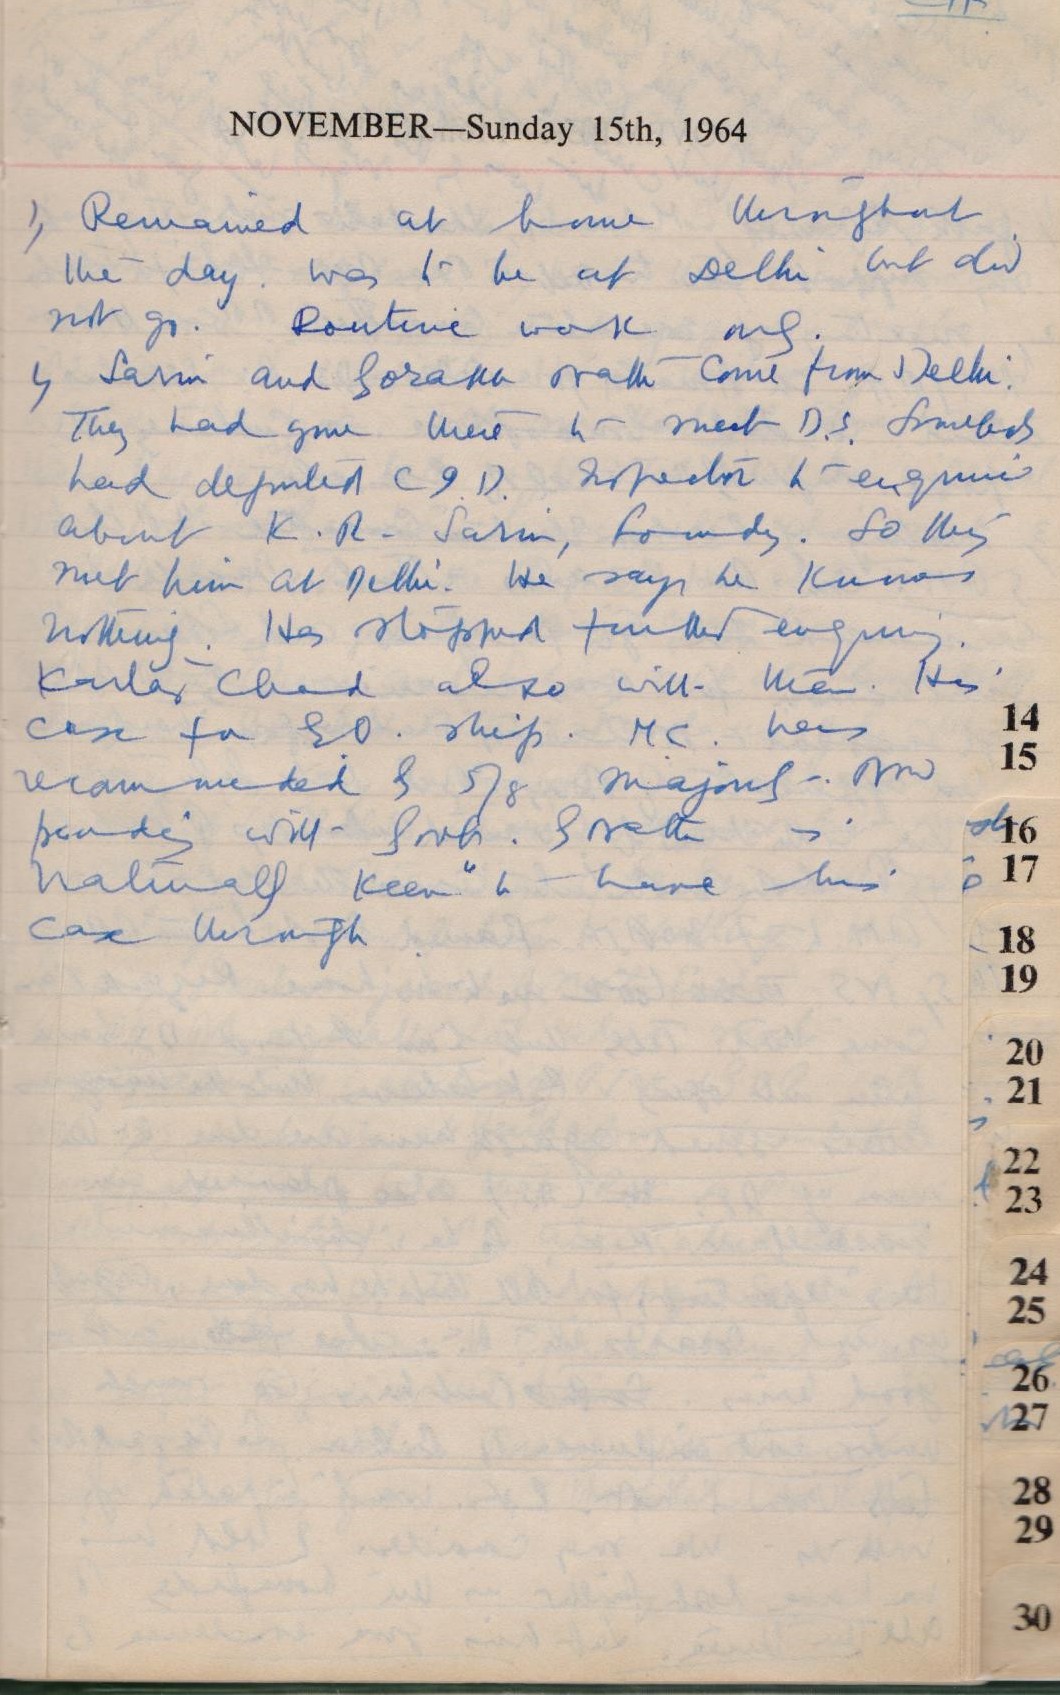 NOVEMBER—Sunday 15th, 1964
1) Remained at home throughout
the day. Was to be at Delhi but did
not go. Routine work only.
2) Sarin and Gorakh Nath come from Delhi.
They had gone there to meet D.S. Somebody
had deputed C.I.D. Inspector to enquire
about K.R. Sarin, Foundry. So they
met him at Delhi. He says he knows
nothing. Has stopped further enquiry.
Kartar Chand also with them. His
case for E.O. ship. M.C. has
recommended by 5/8 majority. Now
pending with Govt. is
naturally keen to have his
case through.
14
15
16
17
18
19
20
21
22
23
24
25
26
27
28
29
30